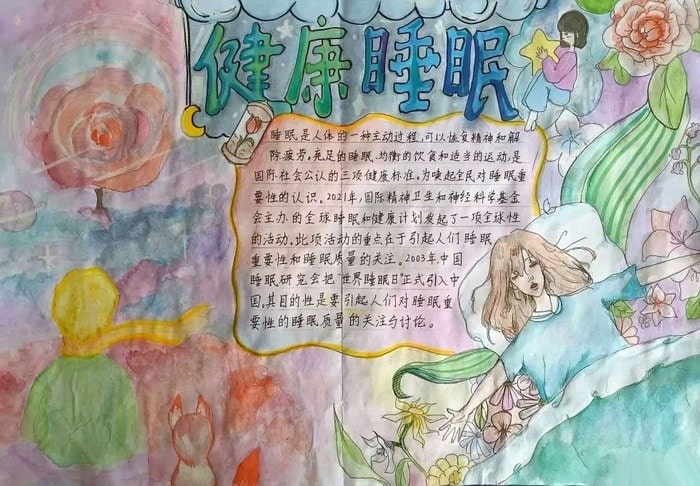 健康睡眠
睡眠是人体的一种主动过程,可以恢复精神和解
除疲劳,充足的睡眠、均衡的饮食和适当的运动,是
国际社会公认的三项健康标准。为唤起全民对睡眠重
要性的认识。2021年,国际精神卫生和神经科学基金
会主办的全球睡眠和健康计划发起了一项全球性
的活动,此项活动的重点在于引起人们睡眠
重要性和睡眠质量的关注。2003年中国
睡眠研究会把“世界睡眠日”正式引入中
国,其目的性是要引起人们对睡眠重
要性的睡眠质量的关注与讨论。